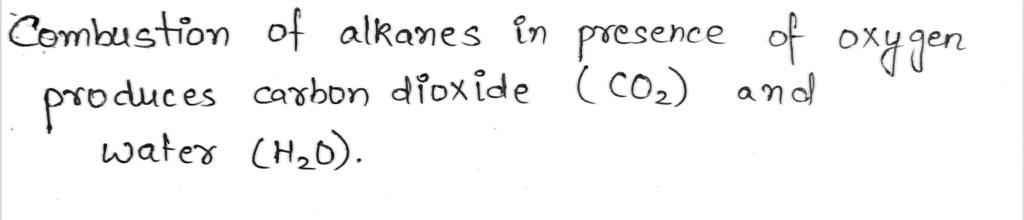 Combustion of alkanes in presence of oxygen
produces carbon dioxide (CO₂) and
water (H₂O).